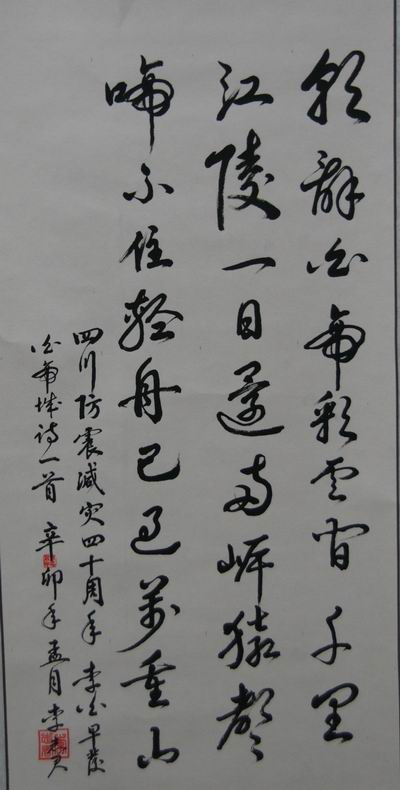 朝辞白帝彩云间千里
江陵一日还两岸猿声
啼不住轻舟已过万重山
四川防震减灾四十周年 李白早发
白帝城诗一首 辛卯年孟月 李